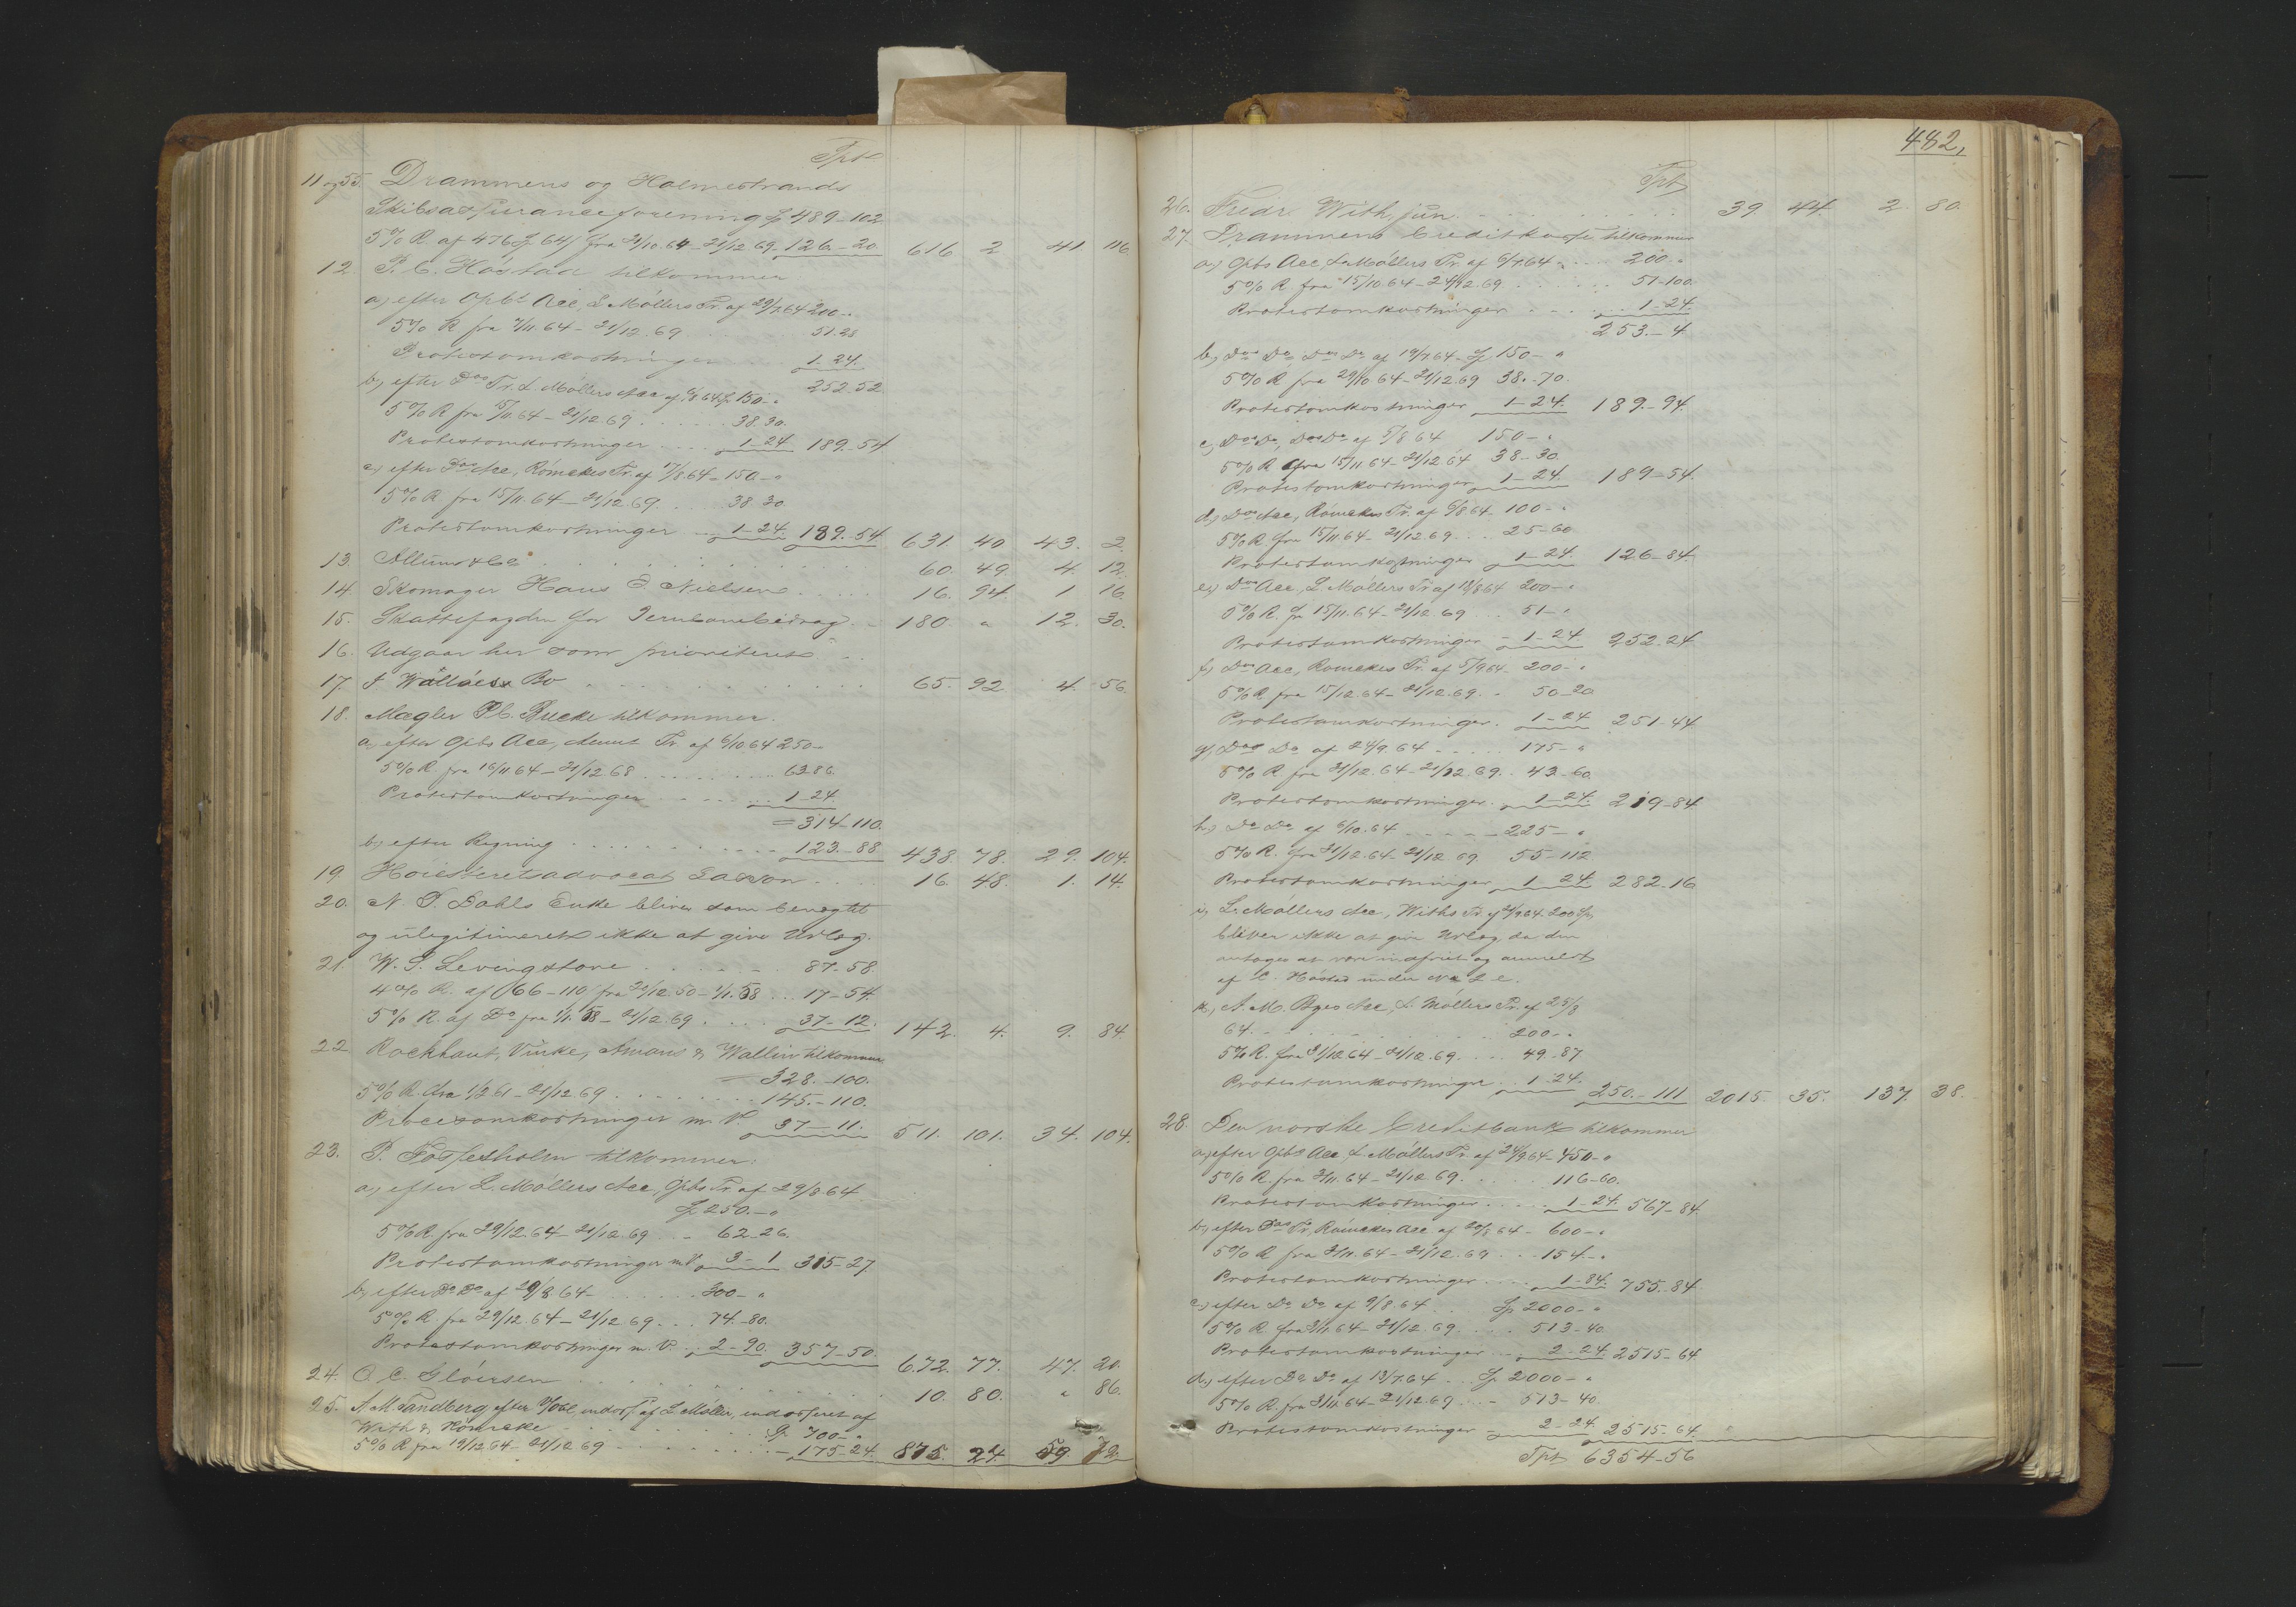 Tpt
11 og 55. Drammens og Holmestrands
Skibsassuranceforening Sp 489-102
5% R. af 476 Sp 64 s fra 21/10.64-21/12.69. 126.-20. 616. 2 41. 116
12. P. C. Høstad tilkommer
a, efter Opbs Acc, L. Møllers Tr. af 29/7.64 200-"
5% R fra 7/11.64-21/12.69 51.28
Protestomkostninger 1-24.
252.52
b, efter Dos Tr. L. Møllers Acc af 6/8 64 Sp 150-"
5% R fra 15/11.64-21/12.69 . . . . . 38.30.
Protestomkostninger 1-24. 189-54
c, efter Dos Acc, Römckes Tr. af 17/8.64-150-"
5% R. fra 15/11.64-21/12.69. . . . 38.30.
Protestomkostninger 1-24. 189.-54 631. 40 43. 2.
13. Allum & Co . . . . . . 60. 49. 4. 12.
14. Skomager Hans J. Nielsen . . . . 16. 94. 1 16.
15. Skattefogden for Jernbanebidrag. 180. " 12. 30.
16. Udgaar her som prioriteret
17. J. Wølløes Bo . . . . . . 65. 92 4. 56.
18. Mægler Bucke tilkommer.
a, efter Opbs Acc, Tr. af 6/10.64 250-
5% R. fra 16/11 64-21/12.68 . . . . 63.86.
Protestomkostninger . . . . 1-24
=314-110.
b, efter Regning . . . . . 123.-88. 438. 78. 29. 104.
19. Høiesteretsadvocat Saxon . . . . 16. 48. 1. 14.
20. N. P. Dahls Enke bliver som benegtet
og ulegitimeret ikke at give Udlæg.
21. W. S. Levingstone . . . . 87-58
4% R. af 66-110 fra 22/12.50-1/1.58 . . 17-54.
5% R. af Do fra 1/1.58-21/12.69. . . . 37-12. 142. 4. 9. 84.
22. Rockhaut, Vinke, Amans & Wallin tilkommer
328.-100.
5% R. fra 1/2 61-21/12.69 . . . . 145.-110.
Procesomkostninger m. V. 37-11. 511. 101. 34. 104.
23. P. Fossesholm tilkommer:
a, efter L. Møllers Acc, Opbs Tr. af 29/8.64
Sp 250.-"
5% R. fra 29/12.64-21/12.69 . . 62.26.
Protestomkostninger m. V. 3-1 315-27.
b, efter Do Do af 29/8.64- . . . . 300-"
5% R. fra 29/12.64-21/12.69 . . . 74.-80.
Protestomkostninger m. V. . . 2-90. 357-50. 672. 77. 47. 20.
24. O. C. Gløersen . . . . . . 10. 80. " 86.
25. A. M. Sandberg, efter endoss af L. Møller, endosseret af
With & Römcke Sp 700-"
5% R. fra 19/12.64-21/12.69 . . . . 175-24. 875. 24. 59. 72.
482,
Tpt
26. Fredr. With, jun. . . . . . 39 44. 2. 80.
27. Drammens Creditkasse tilkommer
a, Opbs Acc, L. Møllers Tr. af 6/7.64 . . . 200-"
5% R. fra 15/10.64-21/12.69 . . . . . 51-100.
Protestomkostninger . . . . 1-24.
253.-4.
b, Dos Do, Dos Do af 19/7.64-Sp 150-"
5% R fra 29/10 64-21/12.69 38.-70.
Protestomkostninger 1-24. 189.-94.
c, Dos Do, Dos Do af 5/8 64 150-"
5% R fra 15/11 64-21/12 64 38-30.
Protestomkostninger 1-24. 189-54.
d, Dos Acc, Römckes Tr. af 6/8.64- 100-"
5% R. fra 15/11.64-21/12.69 . . . 25-60
Protestomkostninger 1-24. 126-84.
e, Dos Acc, L. Møllers Tr af 13/8 64 200-"
5% R. fr 15/11.64-21/12 69 . . . 51-"
Protestomkostninger - 1-24. 252.24
f, Dos Acc, Römckes Tr. af 5/9 64. 200-"
5% R. fra 15/12.64-21/12.69. - 50-20
Protestomkostninger. 1-24. 251-44.
g, Dos Do af 24/9.64 . . . . 175-"
5% R fra 31/12.64-21/12.69. 43-60.
Protestomkostninger. 1-24. 219-84
h, Do Do af 6/10.64 . . . . . 225-"
5% R. fra 31/12.64-21/12 69 55-112.
Protestomkostninger 1-24. 282-16
i, L. Møllers Acc, Withs Tr. af 24/9.64 200 Sp,
bliver ikke at give Udlæg, da den
antages at være indfriet og anmeldt
af C. Høstad under No 2 c.
k, A. M. Acc, L. Møllers Tr. af 25/8
64. . . . . . . 200-"
5% R. fra 31/12.64-21/12.69. . . . 49.-87
Protestomkostninger . . 1-24. 250.-111 2015. 35. 137. 38.
28. Den norske Creditbank tilkommer
a, efter Opbs Acc L. Møllers Tr. af 24/9.64-450-"
5% R. fra 2/11.64-21/12 69. . . . 116-60.
Protestomkostninger . . . . 1-24. 567-84.
b, efter Dos Tr, Römckes Acc af 20/8 64 - 600-"
5% R fra 2/11.64-21/12.69 . . . 154-"
Protestomkostninger . . . . 1-84. 755.-84
c, efter Do Do af 9/8.64 . . Sp 2000-"
5% R. fra 2/11.64-21/12.69. . . . 513-40
Protestomkostninger . . . 2-24. 2515-64.
d, efter Do Do af 13/7.64 . . Sp 2000-"
5% R. fra 2/11.64-21/12.69 . . - 513-40.
Protestomkostninger - 2-24. 2515-64.
Tpt 6354-56